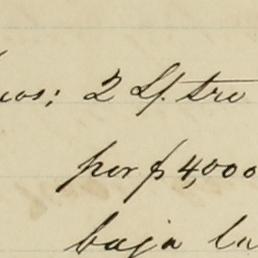 cos; 2 Lf. tre
por $ 4,000
baja la